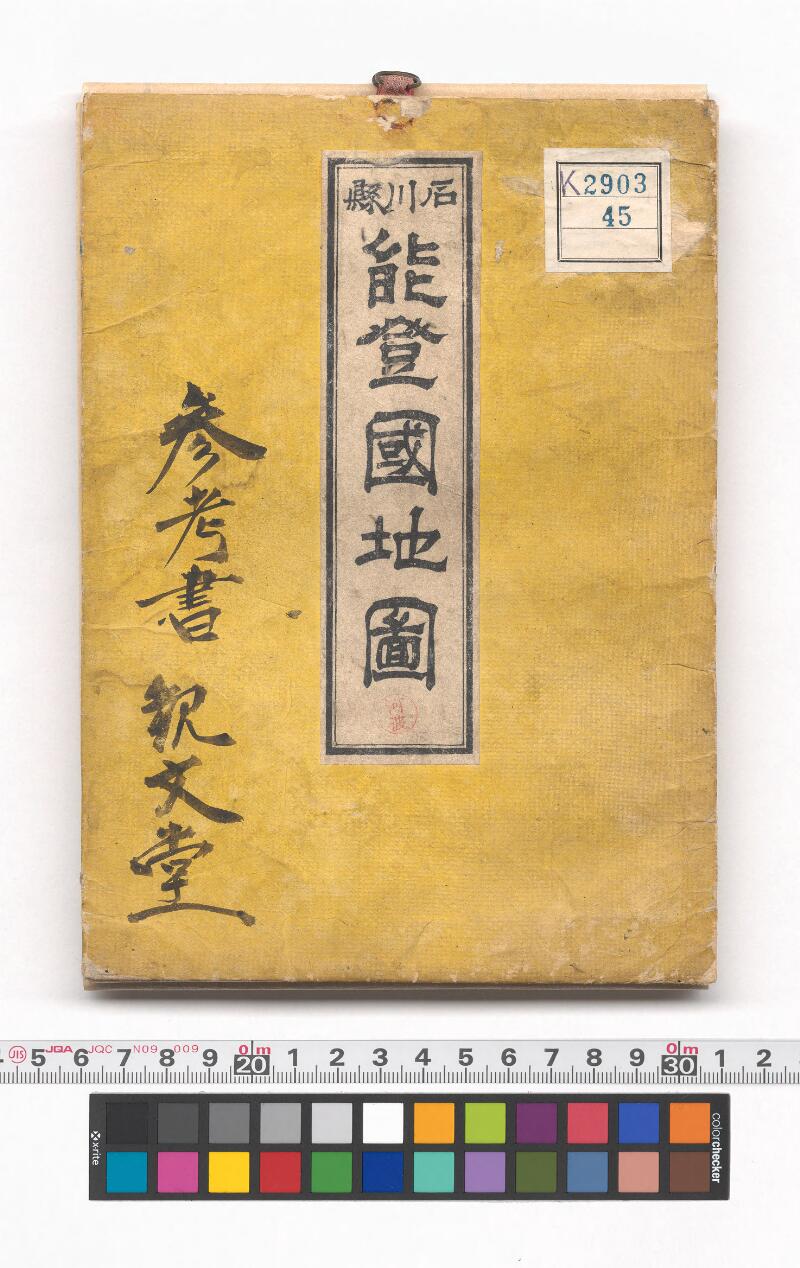 石川縣
能登國地圖
K2903
45
参考書 観文堂
JIS 5 JQA 6 JQC 7 N09 8 009 9 0m 20 1 2 3 4 5 6 7 8 9 0m 30 1 2
x-rite
colorchecker